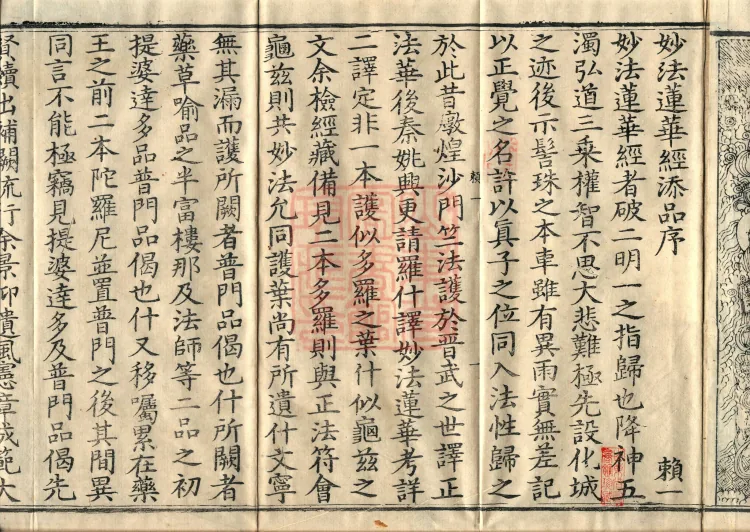 妙法蓮華經添品序 賴一
妙法蓮華經者破二明一之指歸也降神五
濁弘道三乘權智不思大悲難極先設化城
之迹後示髻珠之本車雖有異雨實無差記
以正覺之名許以眞子之位同入法性歸之
賴一
於此昔燉煌沙門竺法護於晋武之世譯正
法華後秦姚興更請羅什譯妙法蓮華考詳
二譯定非一本護似多羅之葉什似龜茲之
文余檢經藏備見二本多羅則與正法符會
龜茲則共妙法允同護葉尚有所遺什文寧
無其漏而護所闕者普門品偈也什所闕者
藥草喻品之半富樓那及法師等二品之初
提婆達多品普門品偈也什又移囑累在藥
王之前二本陀羅尼並置普門之後其間異
同言不能極竊見提婆達多及普門品偈先
賢續出補闕流行余景仰遺風憲章成範大